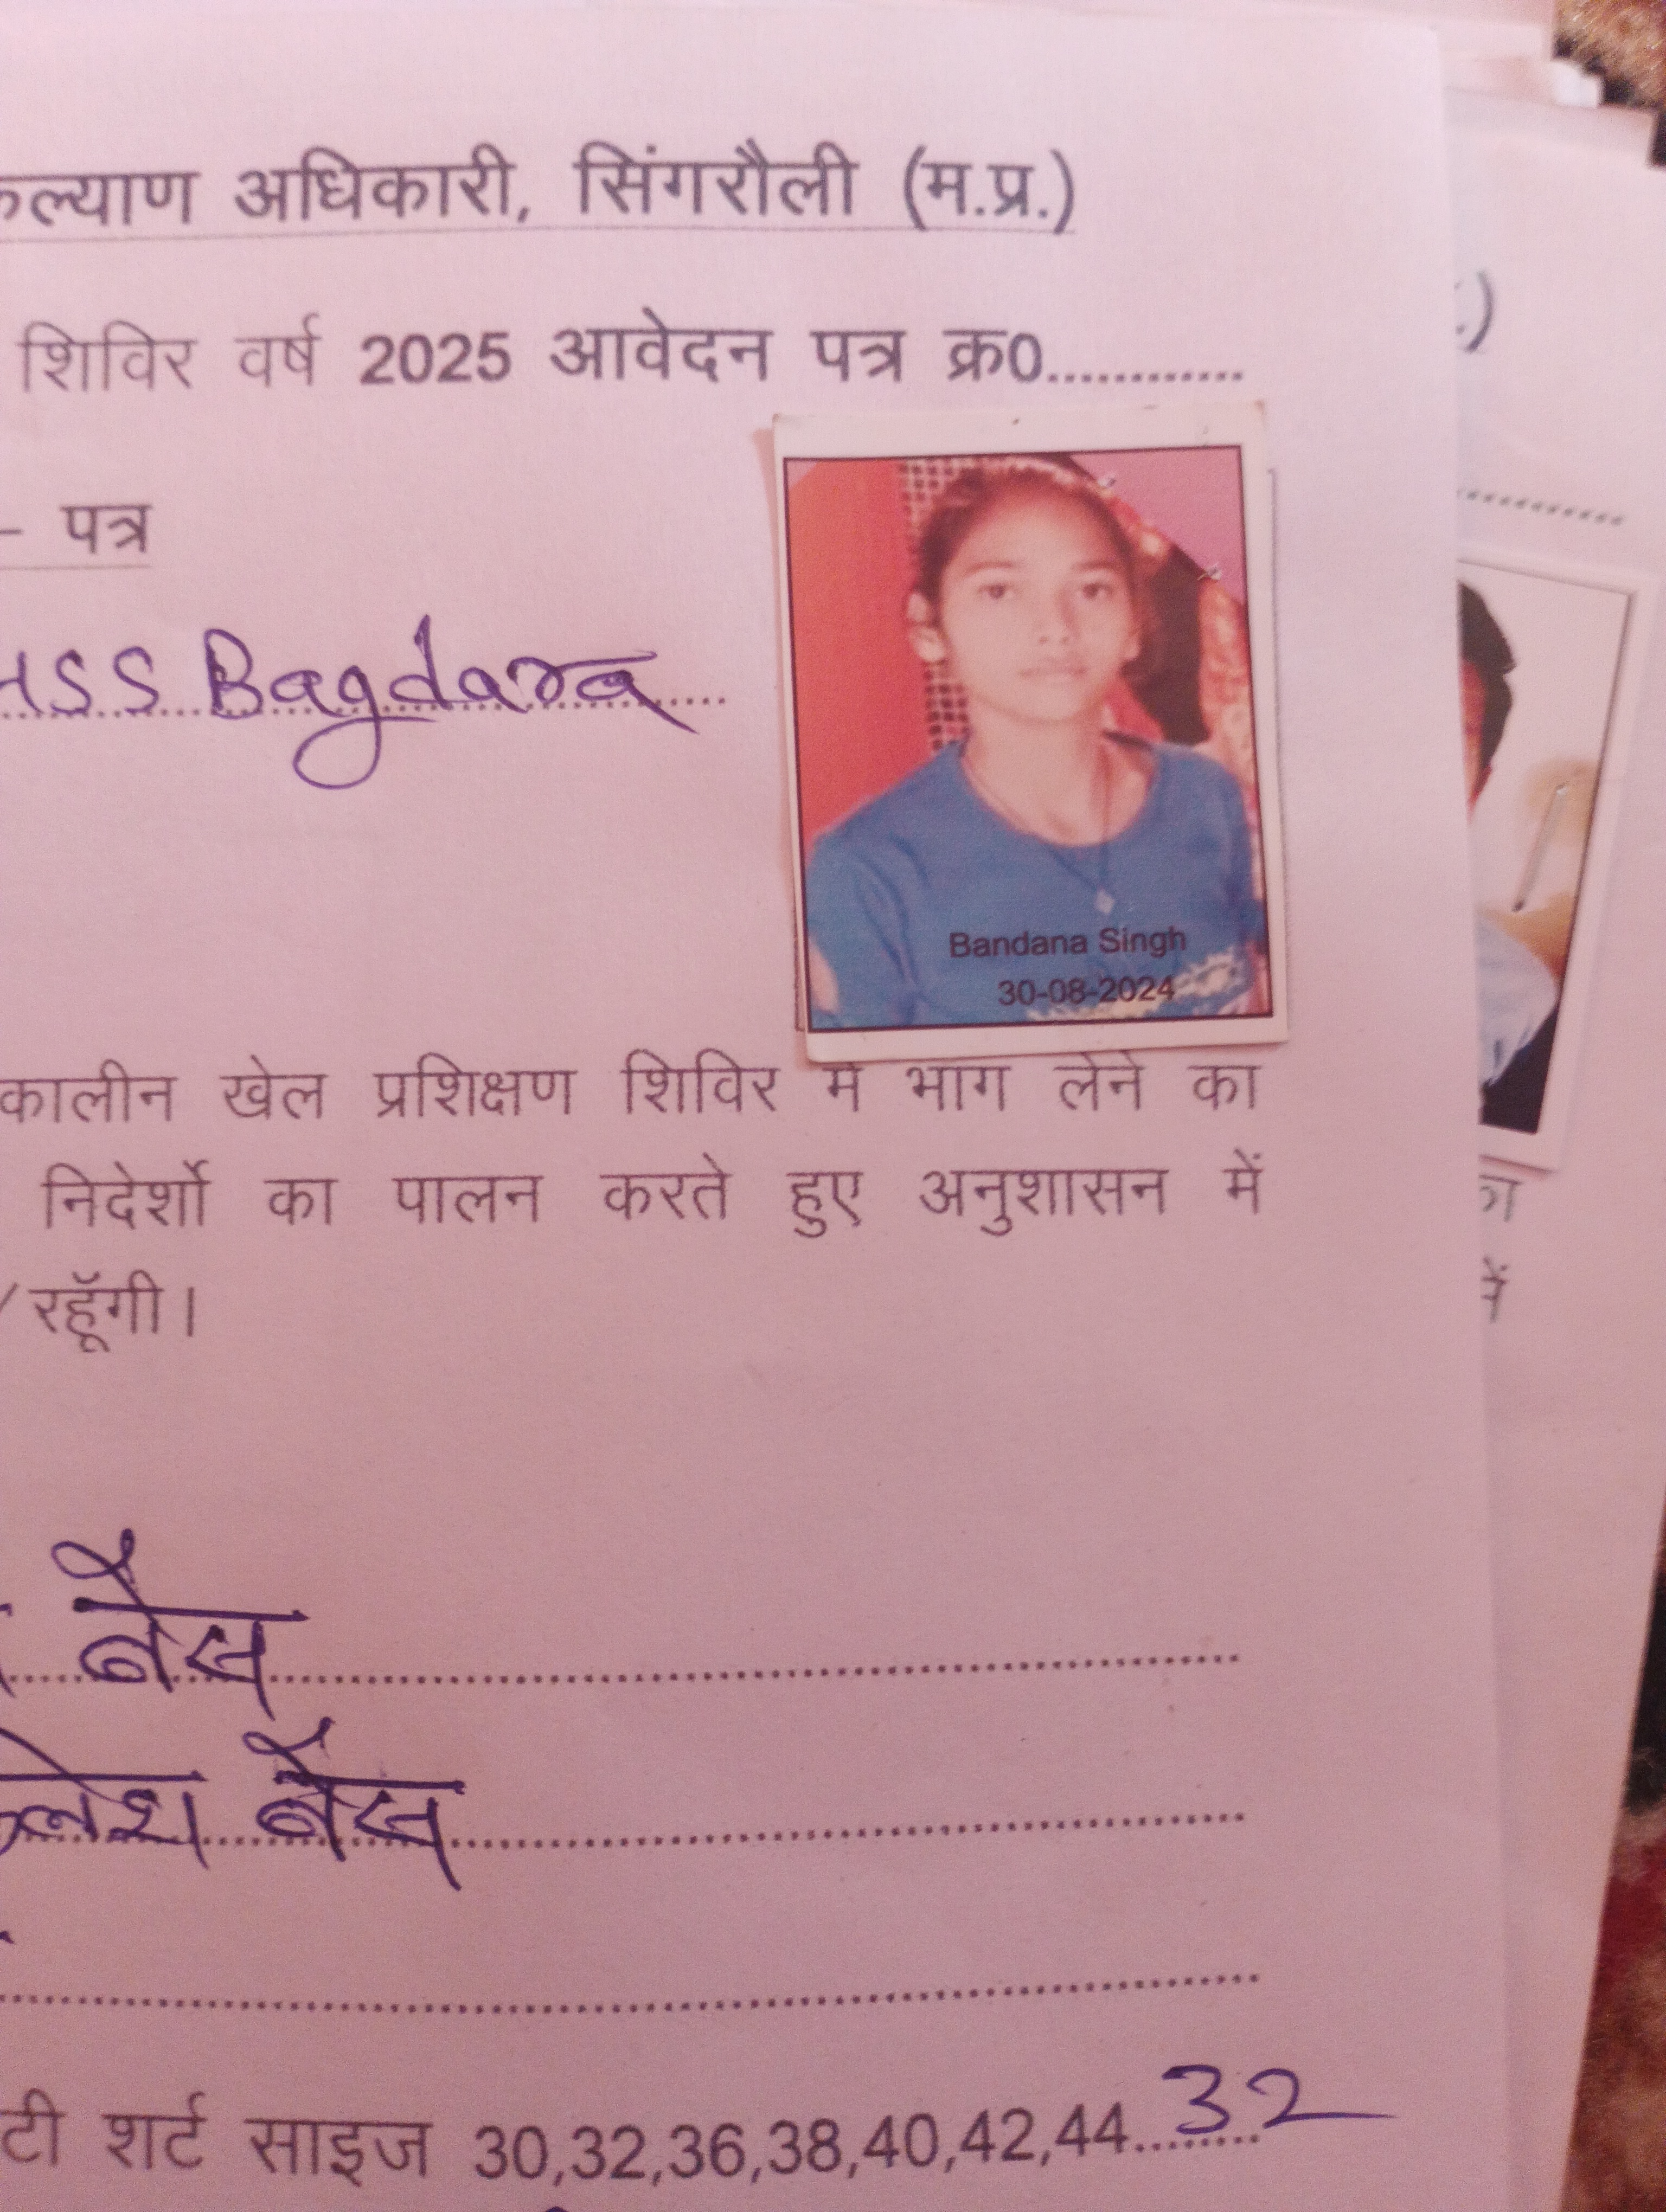 कल्याण अधिकारी, सिंगरौली (म.प्र.)
शिविर वर्ष 2025 आवेदन पत्र क्र0.............
- पत्र
HSS Bagdara
Bandana Singh
30-08-2024
कालीन खेल प्रशिक्षण शिविर में भाग लेने का
निदेर्शो का पालन करते हुए अनुशासन में
/ रहूॅगी।
बैस
लेश बैस
टी शर्ट साइज 30,32,36,38,40,42,44 32